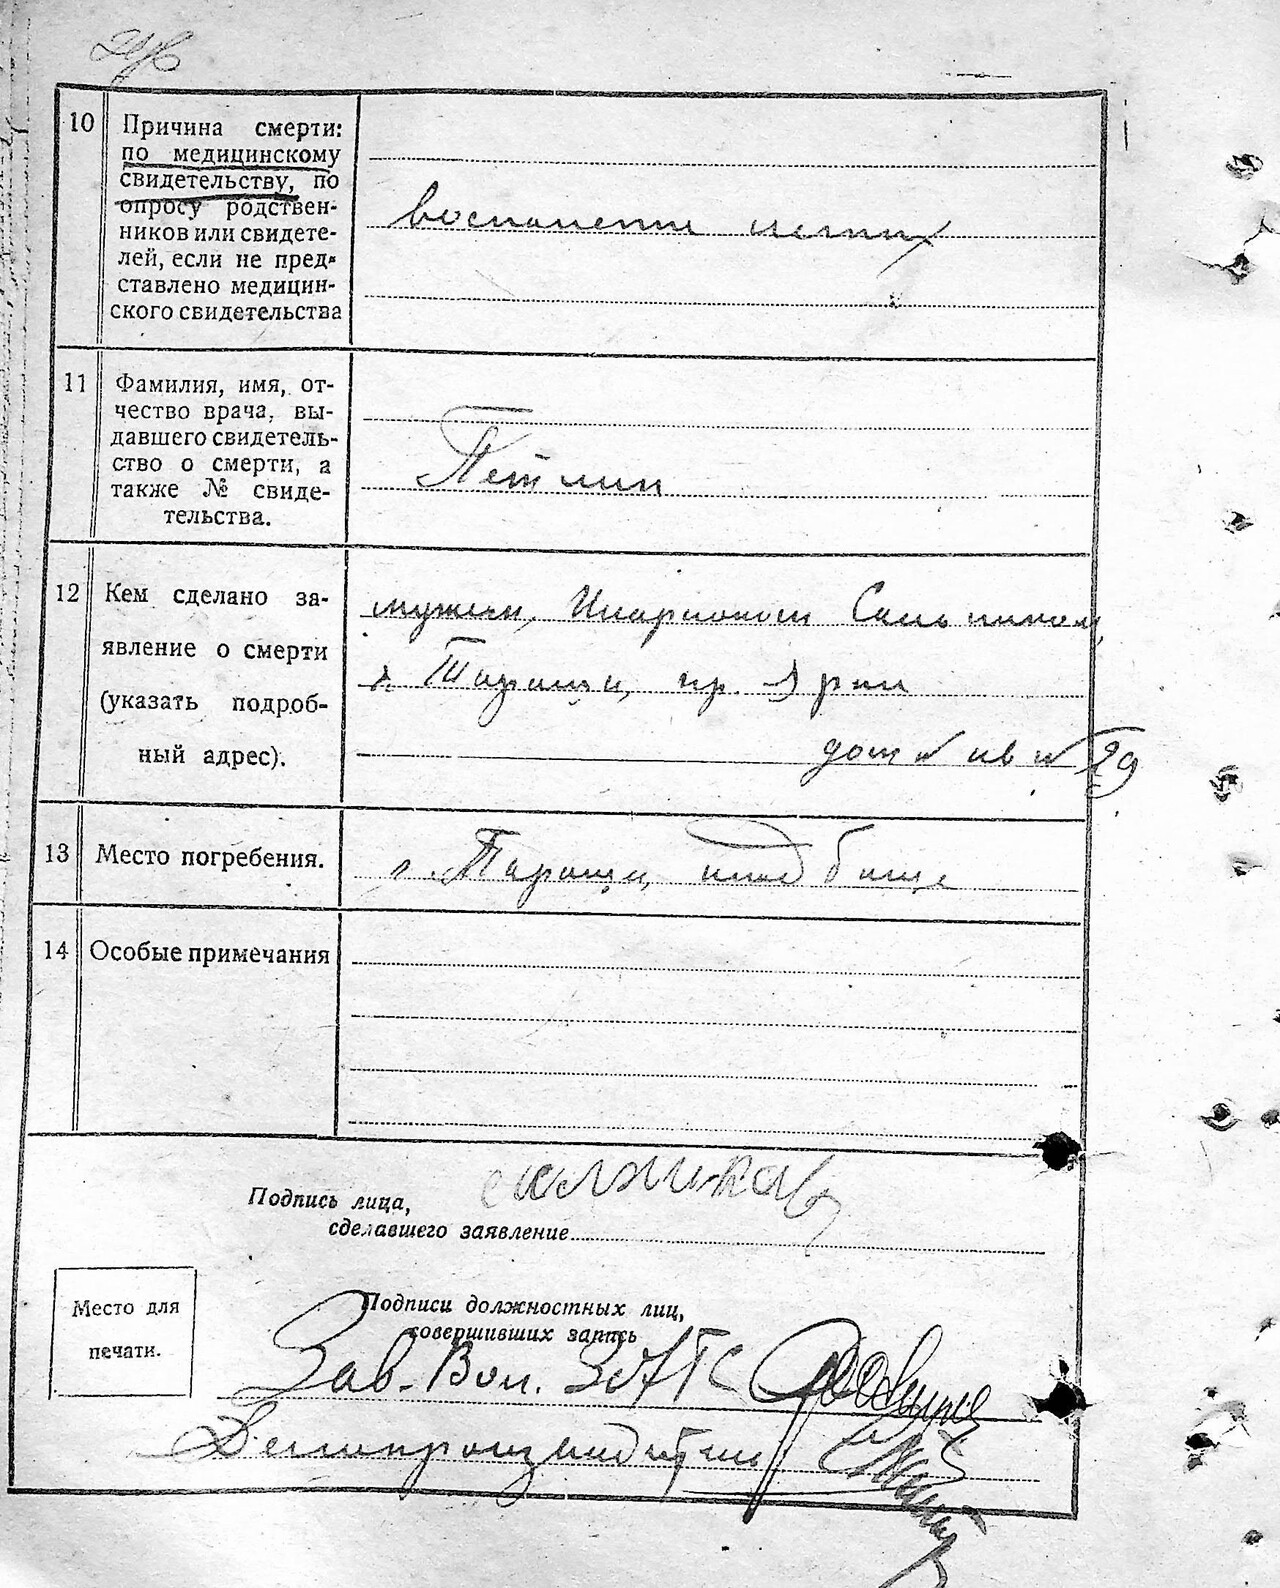 10
Причина смерти:
по медицинскому
свидетельству, по
опросу родствен-
ников или свидете-
лей, если не пред-
ставлено медицин-
ского свидетельства
воспаление легких
11
Фамилия, имя, от-
чество врача, вы-
давшего свидетель-
ство о смерти, а
также № свиде-
тельства.
Петлин
12
Кем сделано за-
явление о смерти
(указать подроб-
ный адрес).
мужем,
г. Тараща, пр.
дом № кв № 29
13
Место погребения.
г. Тараща, кладбище
14
Особые примечания
Подпись лица,
сделавшего заявление
Место для
печати.
Подписи должностных лиц,
совершивших запись
Зав. ЗАГС
Делопроизводитель